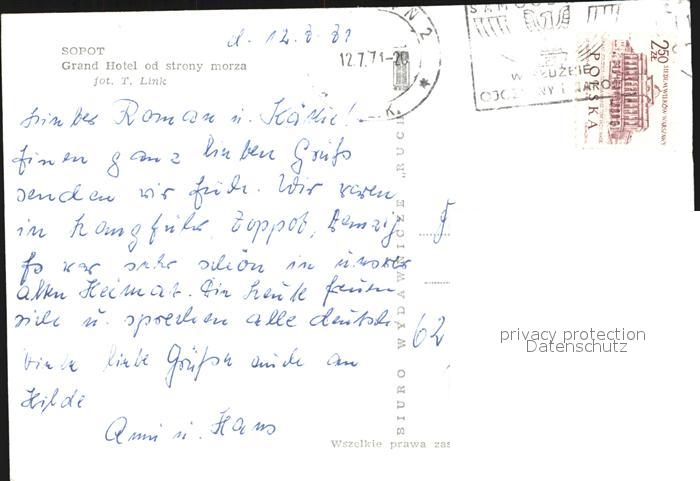 SOPOT
Grand Hotel od strony morza
fot. T. Link
d. 12.7.71
12.7.71-20
N 2
W SŁUŻBIE
OJCZYZNY I
2.50 ZŁ
POLSKA
Lieber Roman u.
Einen ganz lieben Gruß
senden wir Euch. Wir waren
in Langfuhr, Zoppot, Danzig
Es war sehr schön in unserer
alten Heimat. Die Leute freuen
sich u. sprechen alle deutsch.
Viele liebe Grüße auch an
Hilde
Anni u. Hans
62
BIURO WYDAWNICZE „RUCH
Wszelkie prawa zas
privacy protection
Datenschutz